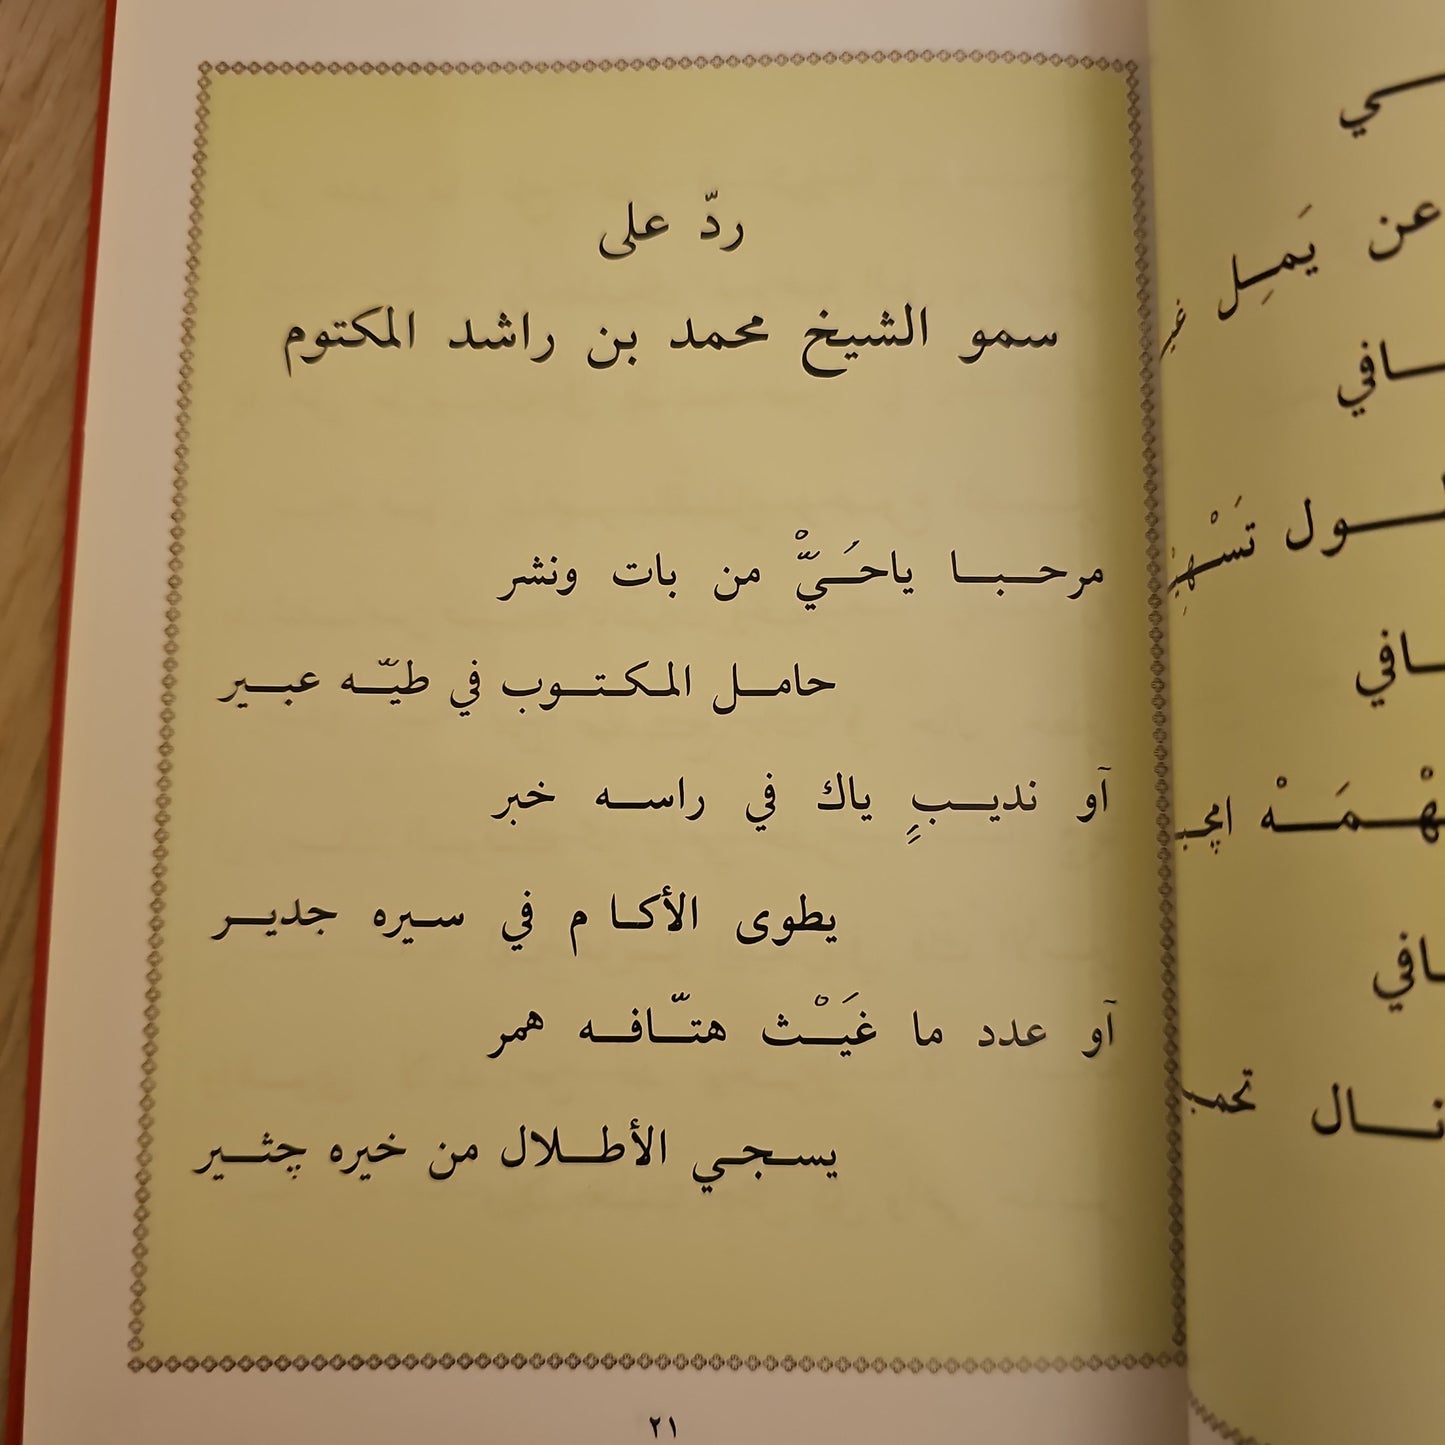 ردّ على
سمو الشيخ محمد بن راشد المكتوم
مرحبا ياحَيّْ من بات ونشر
حامل المكتوب في طيّه عبير
آو نديبٍ ياك في راسه خبر
يطوى الأكام في سيره جدير
آو عدد ما غَيْث هتّافه همر
يسجي الأطلال من خيره چثير
٢١
عن يَمِل
افي
افي
افي